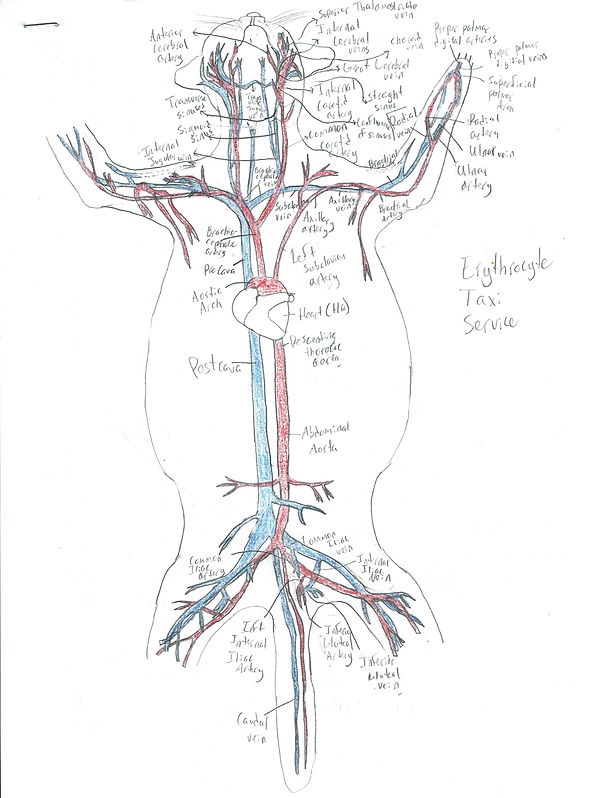 Superior Thalamostriate
vein
Anterior
Cerebral
artery
Internal
Cerebral
veins
choroid
vein
Great Cerebral
vein
Proper palmar
digital arteries
Proper palmar
digital veins
Superficial
palmar
Internal
Carotid
artery
straight
sinus
Confluence
of sinuses
Radial
vein
Common
Carotid
artery
Transverse
sinuses
Sigmoid
sinus
Internal
Jugular vein
Radial
artery
Ulnar vein
Ulnar
artery
Brachial
Brachio
cephalic
vein
Subclavian
vein
Axillary
artery
Axillary
vein
Brachial
artery
Brachio-
cephalic
artery
Precava
Left
Subclavian
artery
Aortic
Arch
Heart (Ha)
Descending
thoracic
aorta
Erythrocyte
Taxi
Service
Postcava
Abdominal
Aorta
Common
Iliac
artery
Common
Iliac
vein
Internal
Iliac
vein
Left
Internal
Iliac
Artery
Inferior
Gluteal
Artery
Inferior
Gluteal
vein
Caudal
vein